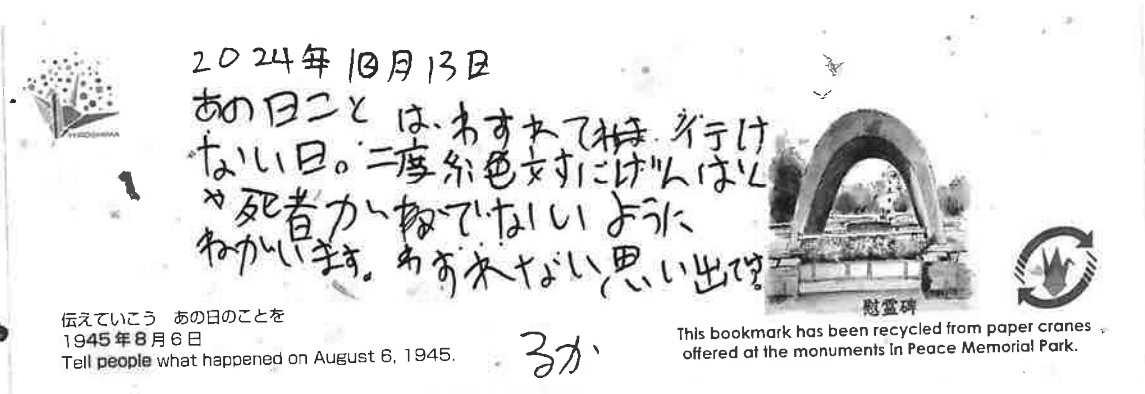 2024年10月13日
あの日ことは、わすれてねは行け
ない日。二度絶文すにげんはく
や死者がねでないように
ねがいます。わすれない思い出です。
るか
HIROSHIMA
慰霊碑
伝えていこう あの日のことを
1945年8月6日
Tell people what happened on August 6, 1945.
This bookmark has been recycled from paper cranes
offered at the monuments in Peace Memorial Park.